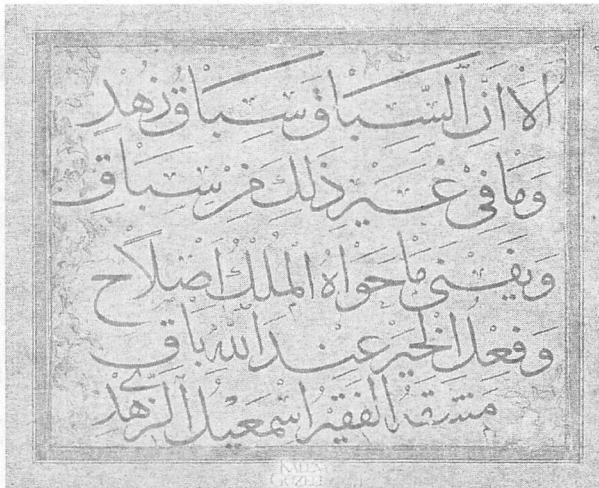 أَلَا إِنَّ السِّبَاقَ سِبَاقُ زُهْدٍ
وَمَا فِي غَيْرِ ذَلِكَ مِنْ سِبَاقِ
وَيَفْنَى مَا حَوَاهُ الْمُلْكُ اَصْلَاح
وَفِعْلُ الْخَيْرِ عِنْدَ اللهِ بَاقِ
مَشَقَهُ الْفَقِيرُ اِسْمَعِيلُ الزُّهْدِي
KALEM
GÜZELİ